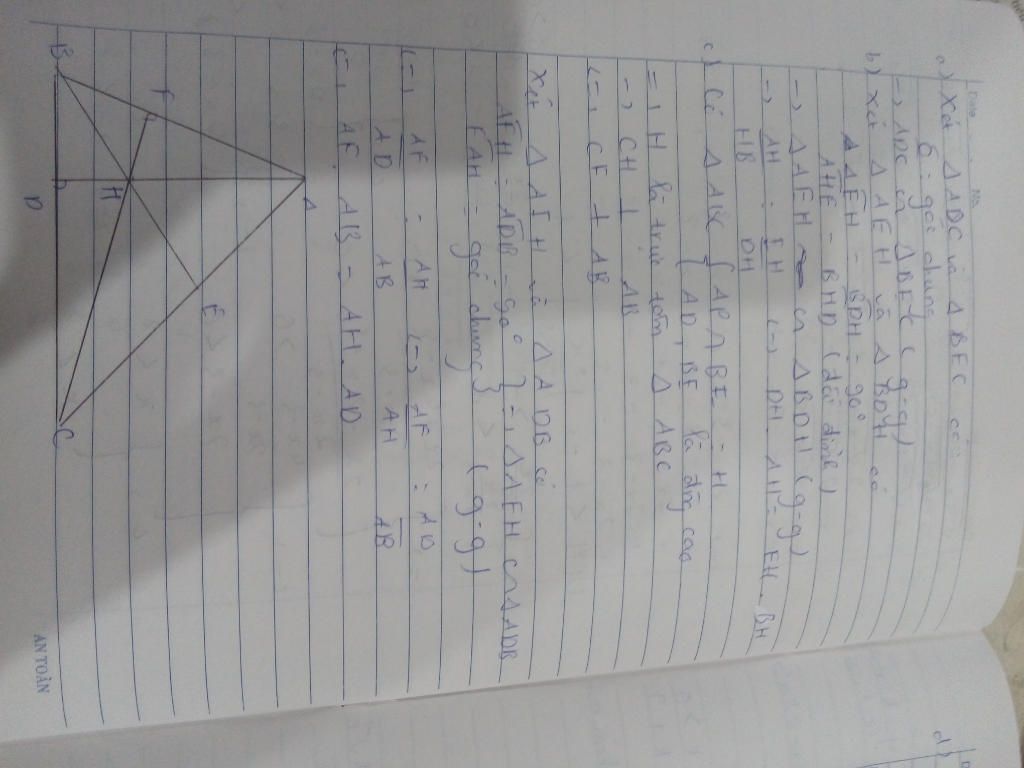 Date No.
a) Xét Δ ADC và Δ BEC có:
C - góc chung
-> ADC ∽ ΔBEC (g-g)
b) Xét Δ AEH và Δ BDH có
AEH = BDH = 90°
AHE = BHD (đối đỉnh)
-> Δ AEH ∽ Δ BDH (g-g)
-> AH/HB = EH/DH (-> DH. AH = EH. BH
c) Có Δ ABC { AD ∩ BE = H
{ AD, BE là đg cao
=> H là trực tâm Δ ABC
-> CH ⊥ AB
(-> CF ⊥ AB
Xét Δ AFH và Δ ADB có
AFH = ADB = 90° } -> Δ AFH ∽ Δ ADB
FAH = góc chung } (g-g)
(-> AF/AD = AH/AB (-> AF/AH = AD/AB
(-> AF. AB = AH. AD
A
F
E
H
B
D
C
AN TOÀN
d)